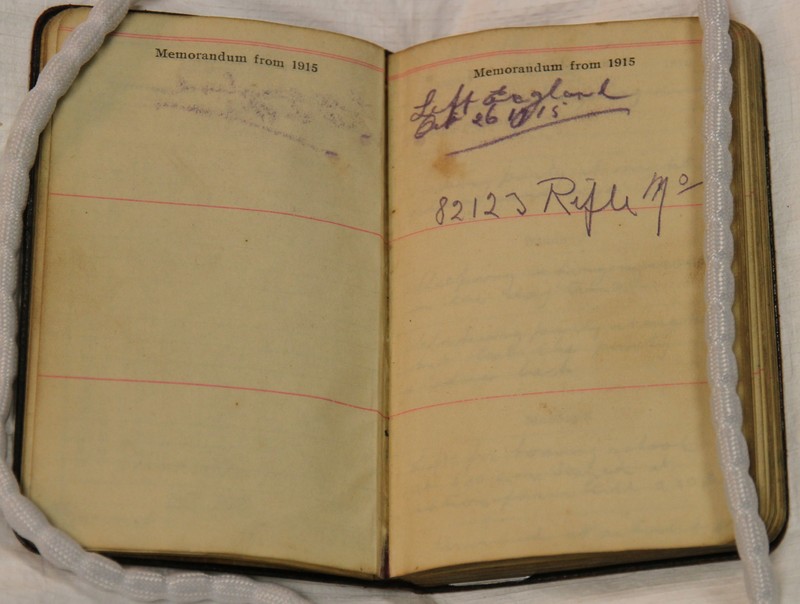 Memorandum from 1915
Memorandum from 1915
Left England
Oct 26 1915
82123 Rifle No